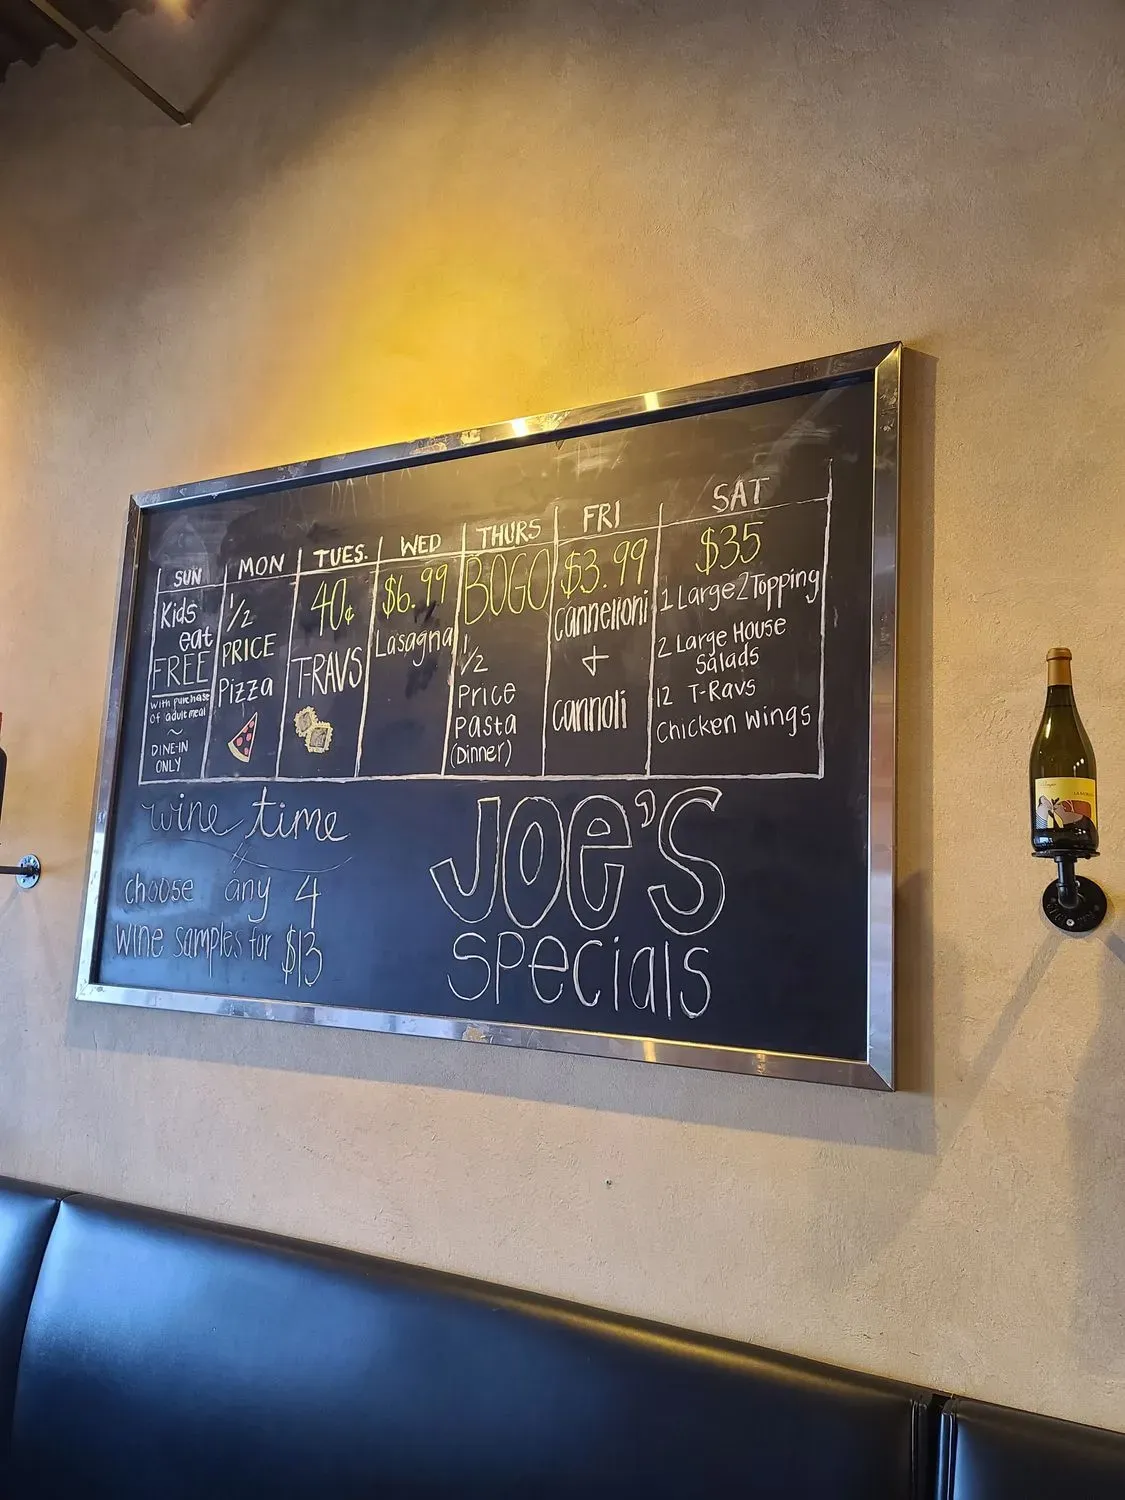 SUN
Kids
eat
FREE
with purchase
of adult meal
~
DINE-IN
ONLY
MON
1/2
PRICE
Pizza
TUES.
40¢
T-RAVS
WED
$6.99
Lasagna
THURS
BOGO
1/2
Price
Pasta
(Dinner)
FRI
$3.99
cannelloni
+
cannoli
SAT
$35
1 Large 2 Topping
2 Large House
Salads
12 T-Ravs
Chicken Wings
wine time
choose any 4
wine samples for $13
JOe'S
specials